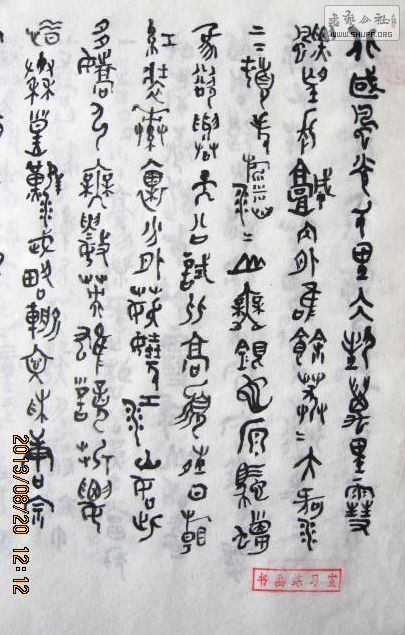 北國風光千里冰封萬里雪
飄望長城内外惟餘莽=大河上
下頓失滔=山舞銀蛇原馳蠟
象欲與天公試比高須晴日看
紅裝素裹分外妖嬈江山如此
多嬌引無數英雄競折腰
惜秦皇漢武略輸文采唐宗
书画练习室
2013/08/20 12:12
书艺公社
WWW.SHUFA.ORG